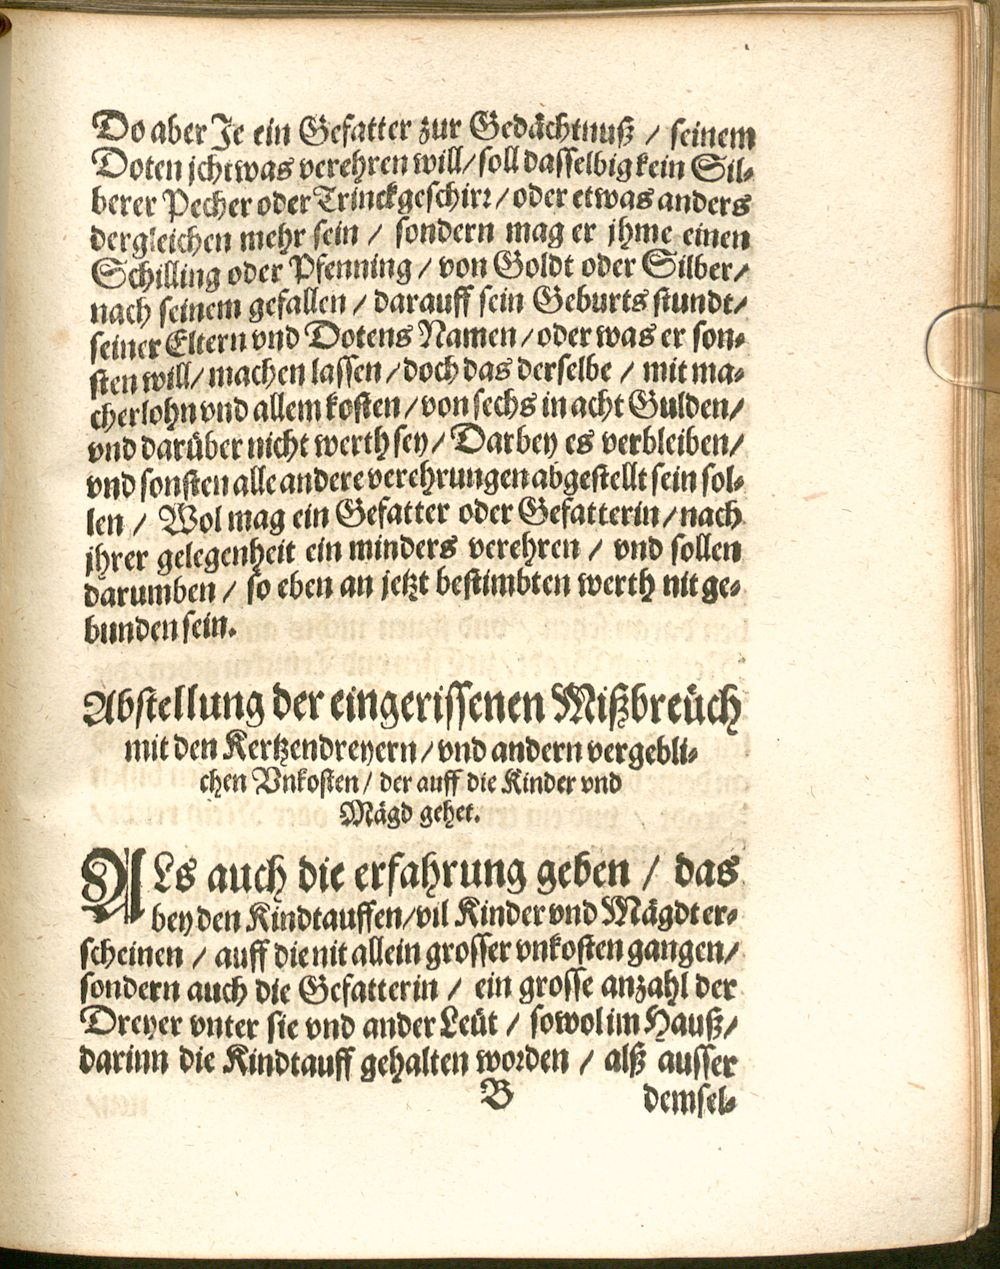 Do aber Je ein Gefatter zur Gedächtnuß / seinem
Doten jchtwas verehren will / soll dasselbig kein Sil-
berer Pecher oder Trinckgeschirr / oder etwas anders
dergleichen mehr sein / sondern mag er jhme einen
Schilling oder Pfenning / von Goldt oder Silber /
nach seinem gefallen / darauff sein Geburts stundt /
seiner Eltern vnd Dotens Namen / oder was er son-
sten will / machen lassen / doch das derselbe / mit ma-
cherlohn vnd allem kosten / von sechs in acht Gulden /
vnd darüber nicht werth sey / Darbey es verbleiben /
vnd sonsten alle andere verehrungen abgestellt sein sol-
len / Wol mag ein Gefatter oder Gefatterin / nach
jhrer gelegenheit ein minders verehren / vnd sollen
darumben / so eben an jetzt bestimbten werth nit ge-
bunden sein.
Abstellung der eingerissenen Mißbreüch
mit den Kertzendreyern / vnd andern vergebli-
chen Vnkosten / der auff die Kinder vnd
Mägd gehet.
ALs auch die erfahrung geben / das
bey den Kindtauffen / vil Kinder vnd Mägdt er-
scheinen / auff die nit allein grosser vnkosten gangen /
sondern auch die Gefatterin / ein grosse anzahl der
Dreyer vnter sie vnd ander Leüt / sowol im Hauß /
darinn die Kindtauff gehalten worden / alß ausser
B demsel-